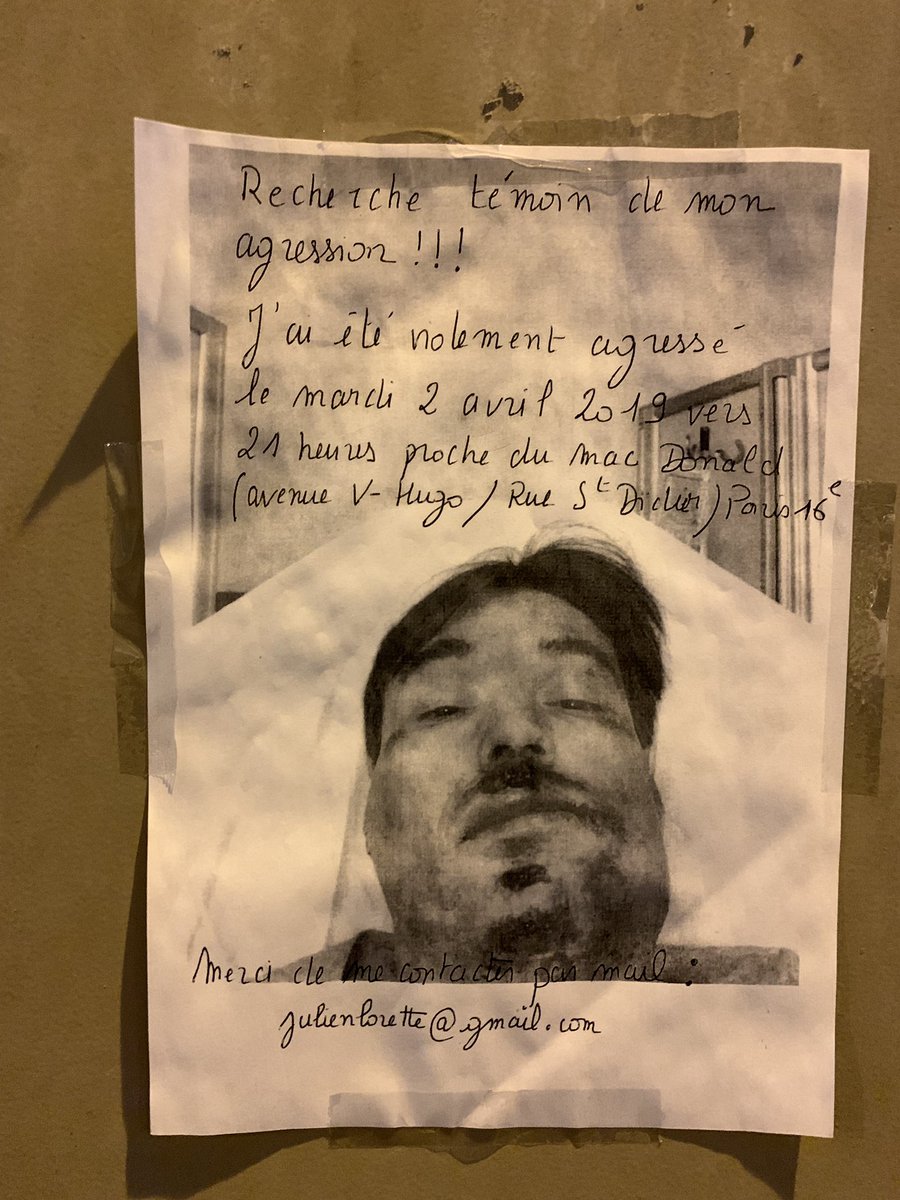 Recherche témoin de mon
agression !!!
J'ai été violement agressé
le mardi 2 avril 2019 vers
21 heures proche du mac Donald
(avenue V-Hugo / Rue St Didier) Paris 16e
Merci de me contacter par mail :
julienlorette@gmail.com